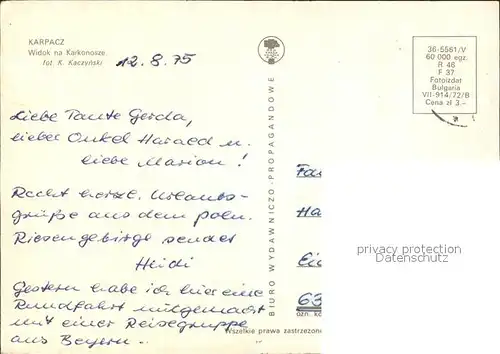 KARPACZ
Widok na Karkonosze.
fot K. Kaczyński
12.8.75
Liebe Tante Gerda,
lieber Onkel Harald u.
liebe Marion!
Recht herzl. Urlaubs-
grüße aus dem poln.
Riesengebirge sendet
Heidi
Gestern habe ich hier eine
Rundfahrt mitgemacht
mit einer Reisegruppe
aus Bayern..
BIURO WYDAWNICZO-PROPAGANDOWE
36-5561/V
60 000 egz.
R 46
F 37
Fotoizdat
Bulgaria
VII-914/72/B
Cena zł 3.–
Fa
Ha
Ei
63
privacy protection
Datenschutz
Wszelkie prawa zastrzeżone
ozn. ko